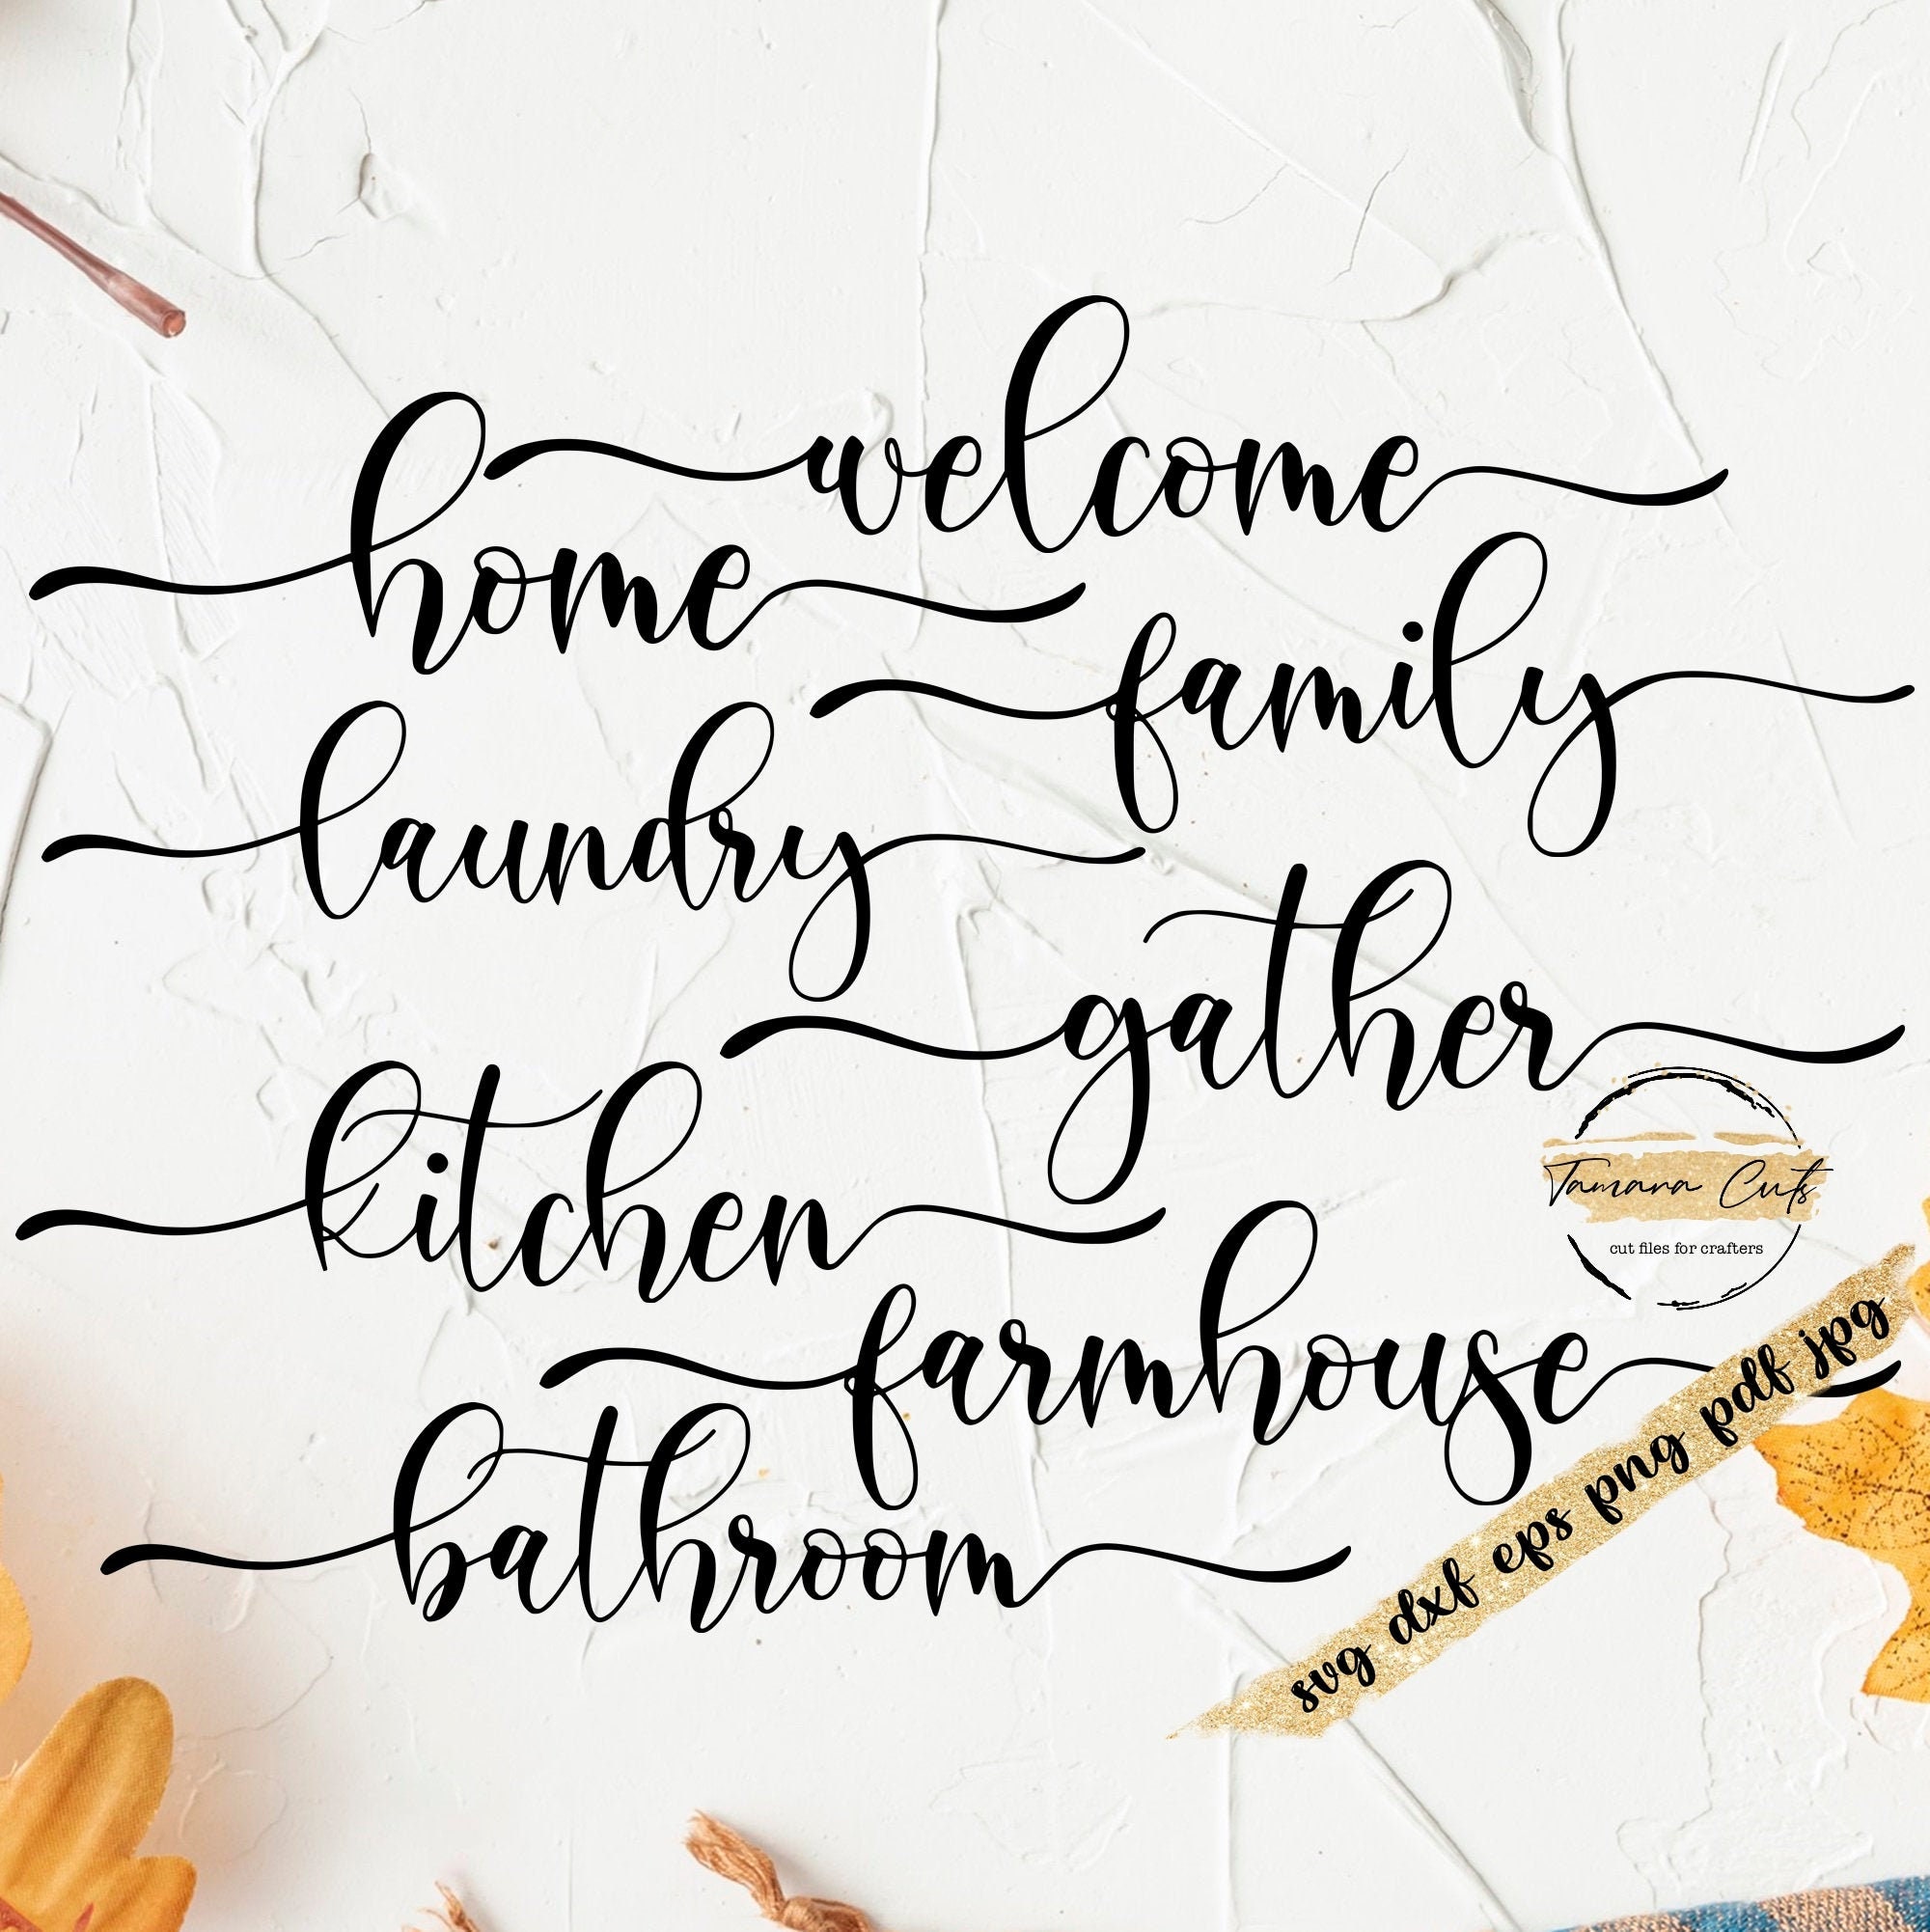 welcome
home
family
laundry
gather
kitchen
Tamara Cuts
cut files for crafters
farmhouse
bathroom
svg dxf eps png pdf jpg